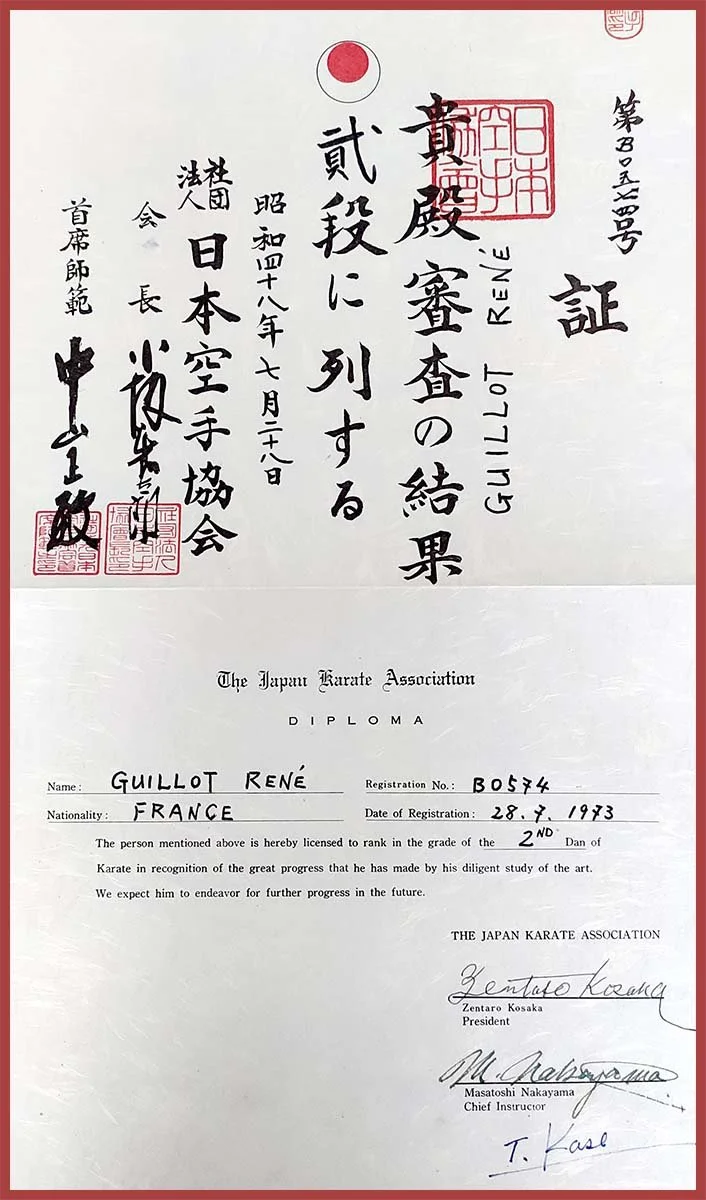 第B〇五七四号
証
GUILLOT RENÉ
貴殿審査の結果
貳段に列する
昭和四十八年七月二十八日
社団法人 日本空手協会
会長 小坂善太郎
首席師範 中山正敏
日本空手協會
The Japan Karate Association
DIPLOMA
Name: GUILLOT RENÉ
Registration No.: B0574
Nationality: FRANCE
Date of Registration: 28. 7. 1973
The person mentioned above is hereby licensed to rank in the grade of the 2ND Dan of
Karate in recognition of the great progress that he has made by his diligent study of the art.
We expect him to endeavor for further progress in the future.
THE JAPAN KARATE ASSOCIATION
Zentaro Kosaka
Zentaro Kosaka
President
M. Nakayama
Masatoshi Nakayama
Chief Instructor
T. Kase